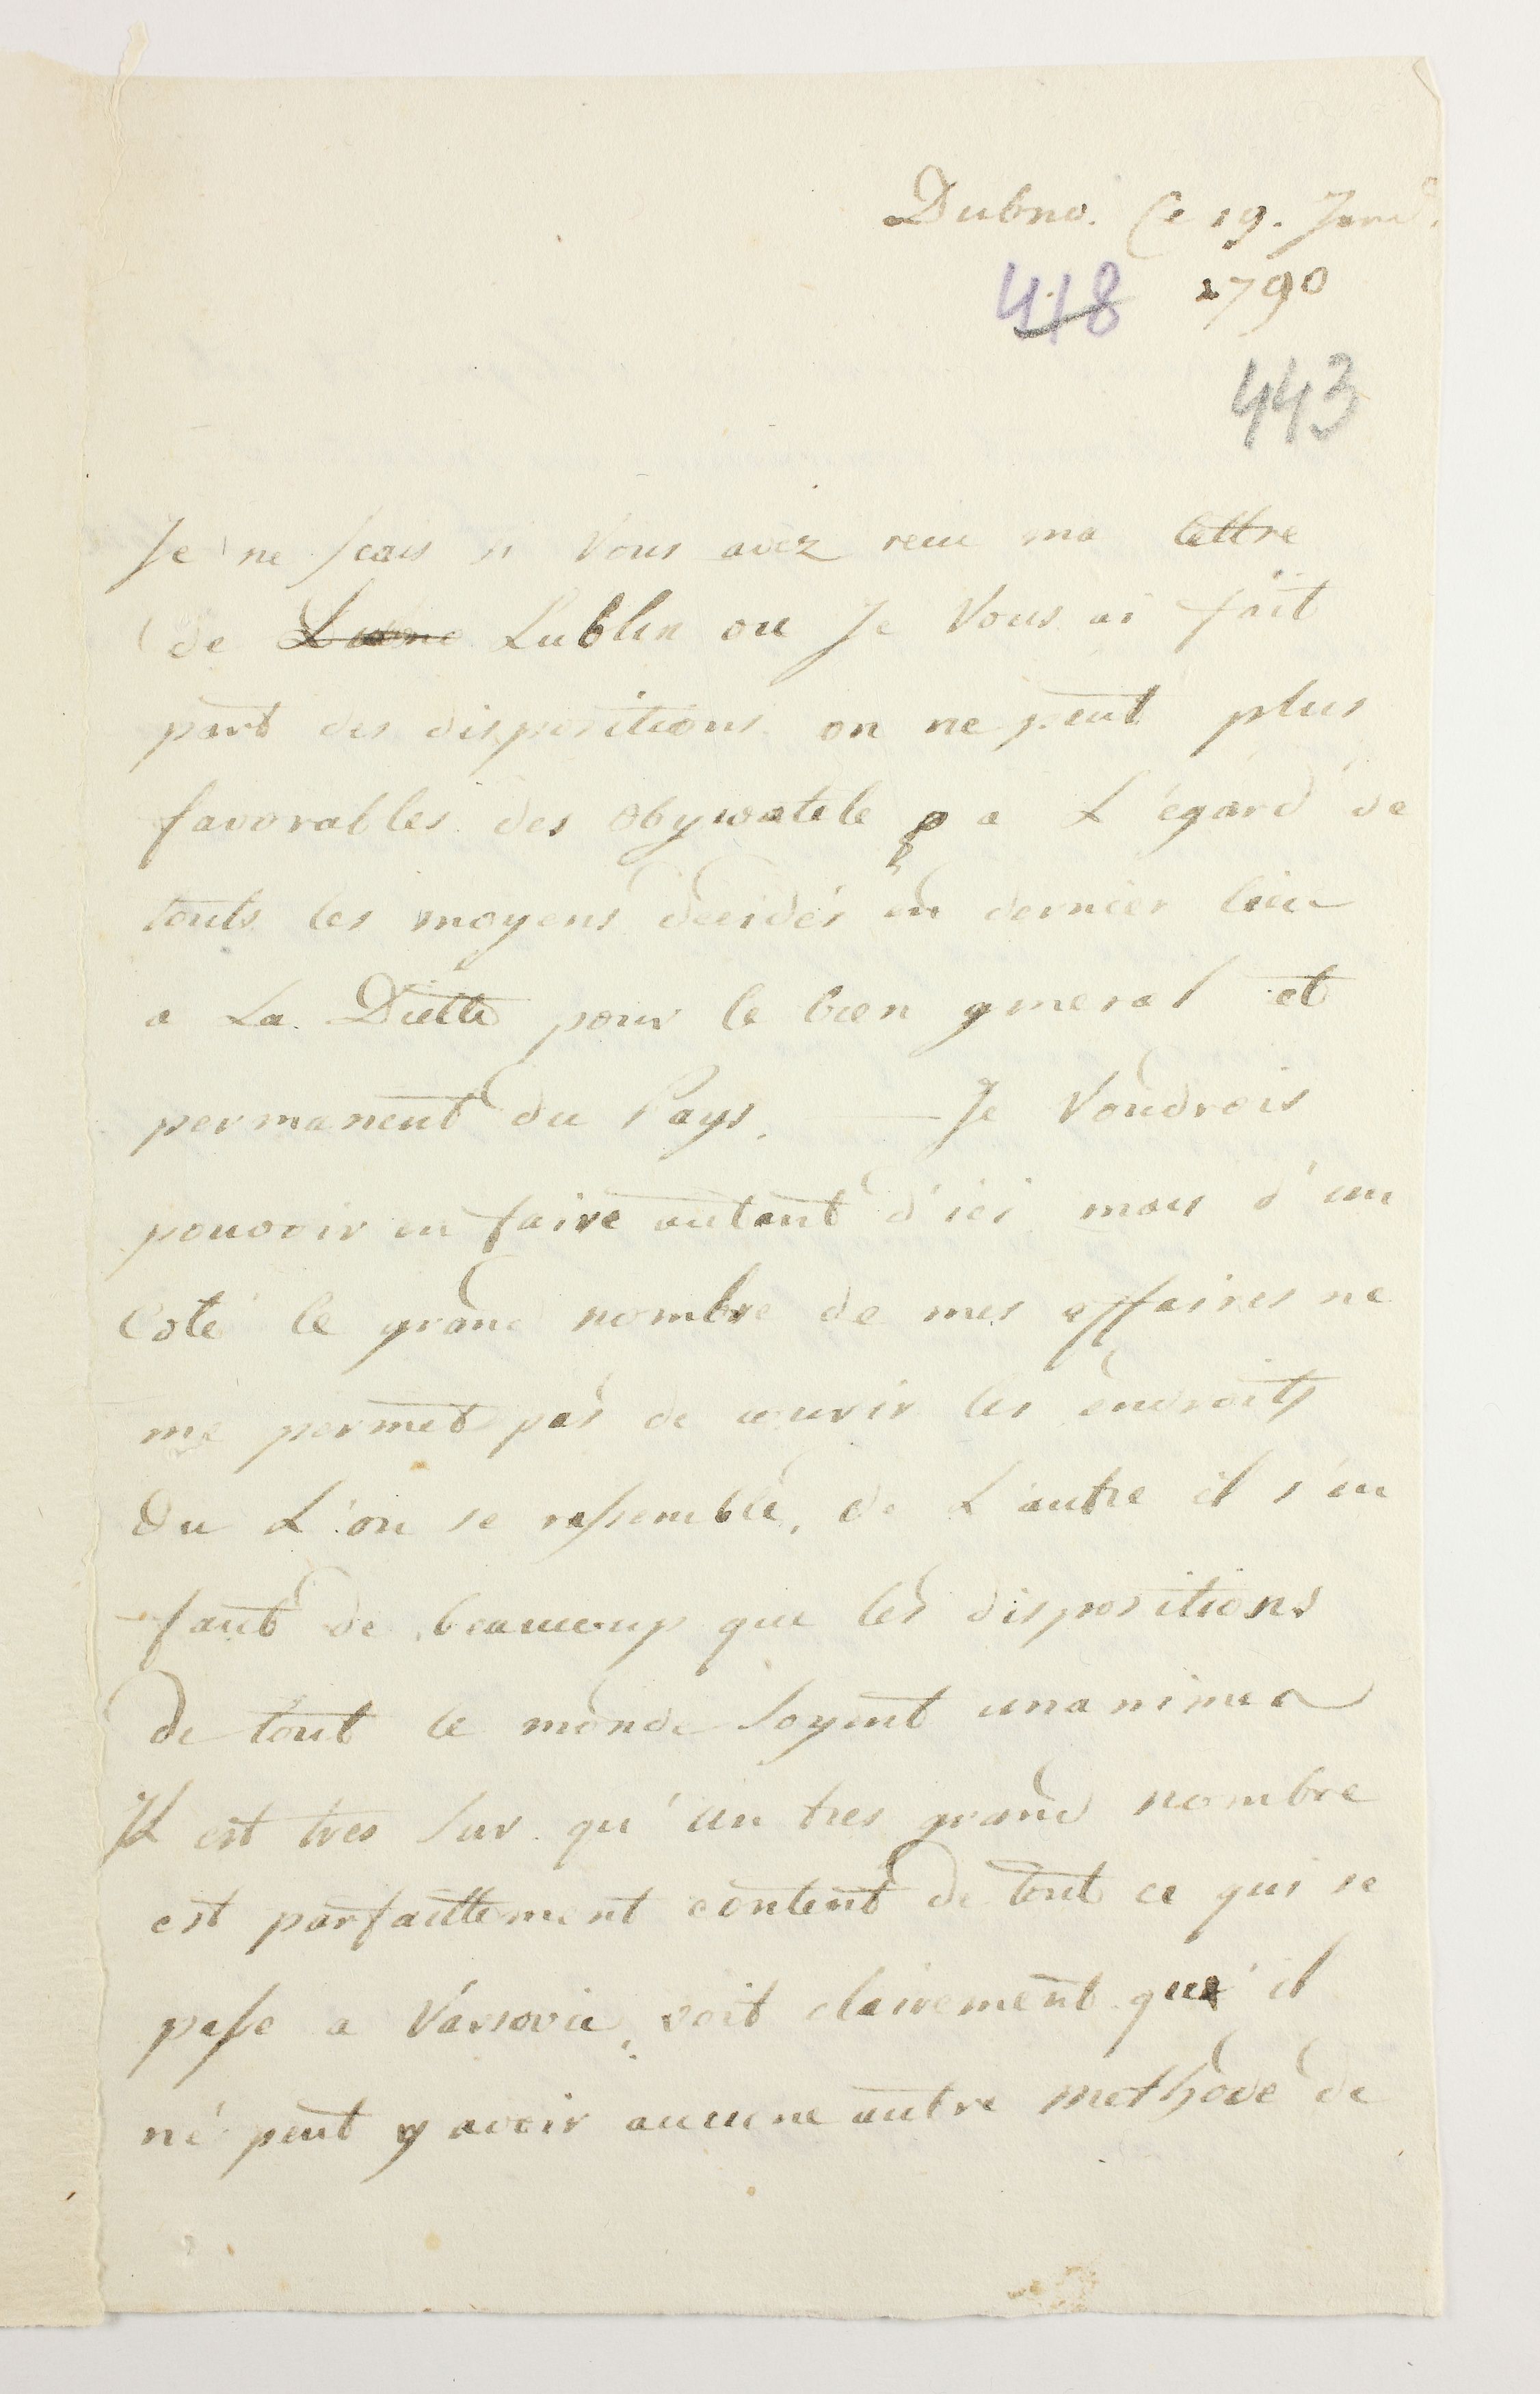 Dubno. Ce 19. Janv.
418 1790
443
Je ne scais si Vous avez reçu ma lettre
de Lublin ou Je Vous ai fait
part des dispositions on ne peut plus
favorables des obywatele a L'égard de
touts les moyens decidés en dernier lieu
a La Diette pour le bien general et
permanent du Pays. — Je Voudrois
pouvoir en faire autant d'ici mais d'un
Coté le grand nombre de mes affaires ne
me permet pas de courir les endroits
Ou L'on se rassemble, de L'autre il s'en
faut de beaucoup que les dispositions
de tout le monde soyent unanimes
Il est tres sur qu'un tres grand nombre
est parfaittement content de tout ce qui se
passe a Varsovie, voit clairement qu'il
ne peut y avoir aucune autre methode de